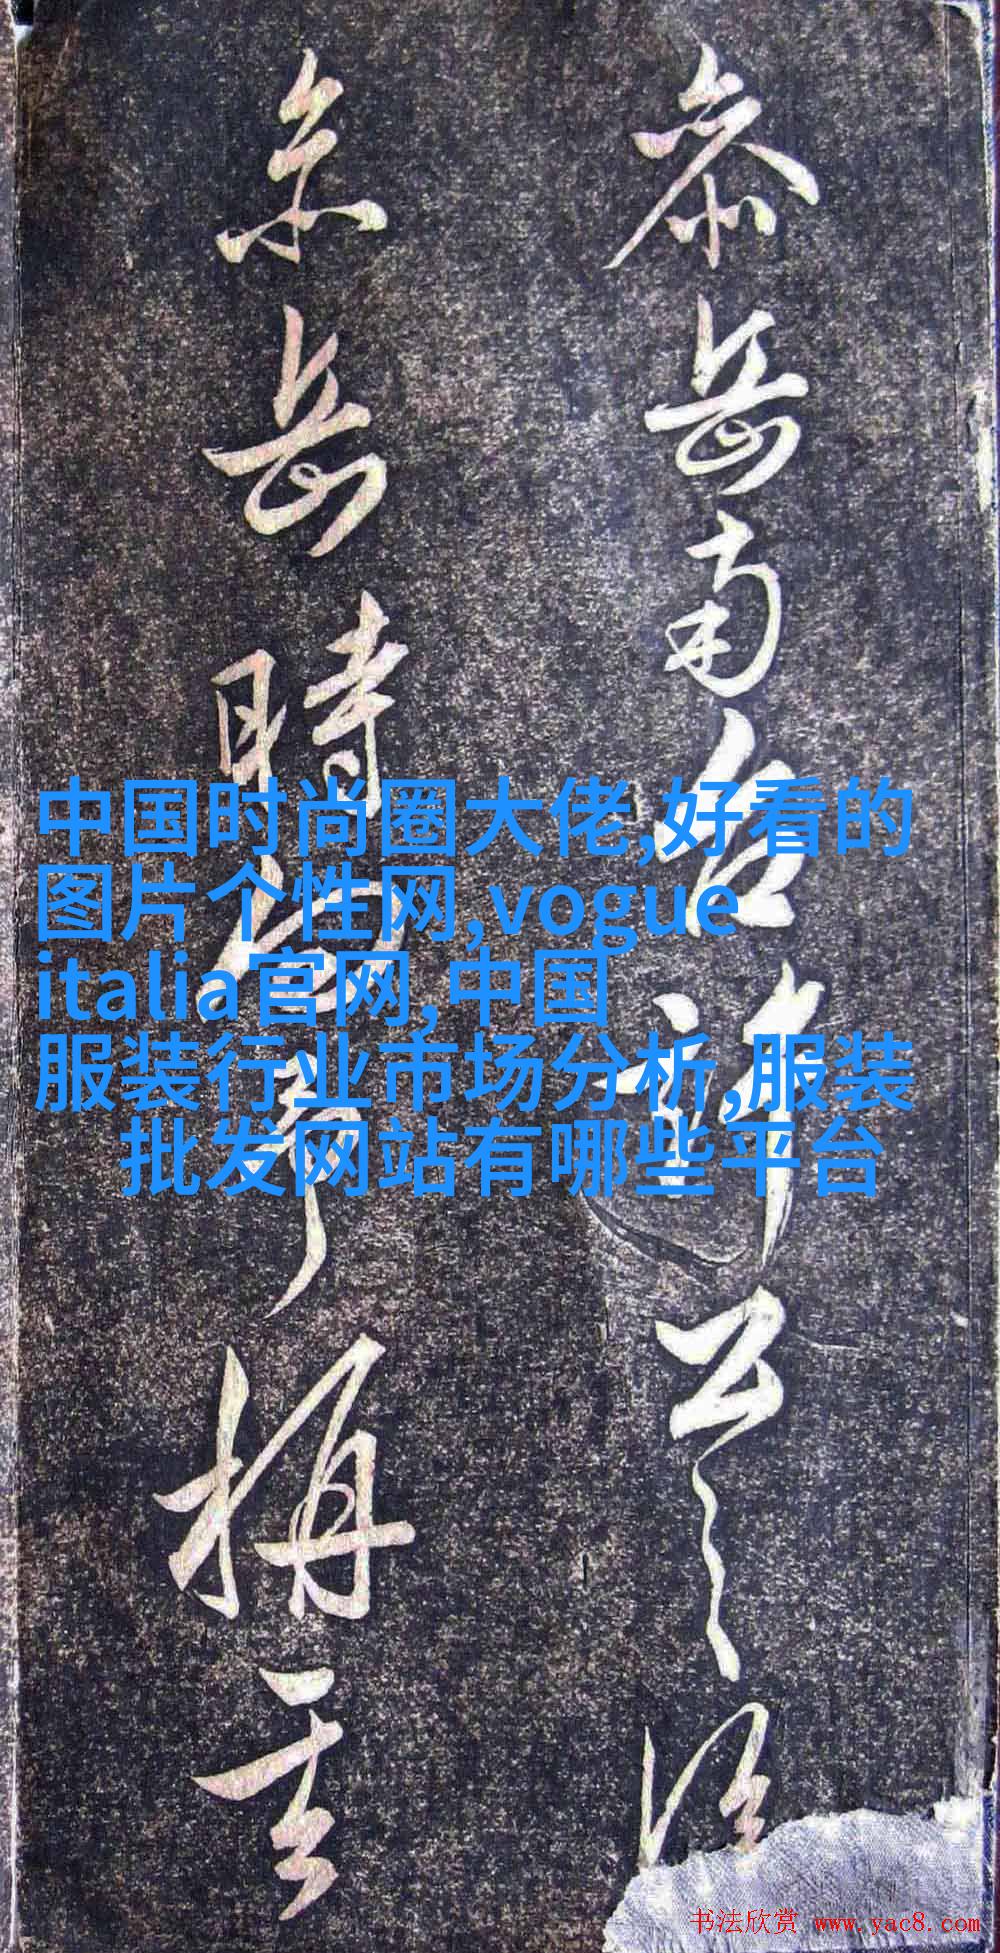 叅岳南台許公之後
余岳時
拇主
中国时尚圈大佬,好看的
图片个性网,vogue
italia官网,中国
服装行业市场分析,服装
批发网站有哪些平台
书法欣赏 www.yac8.com